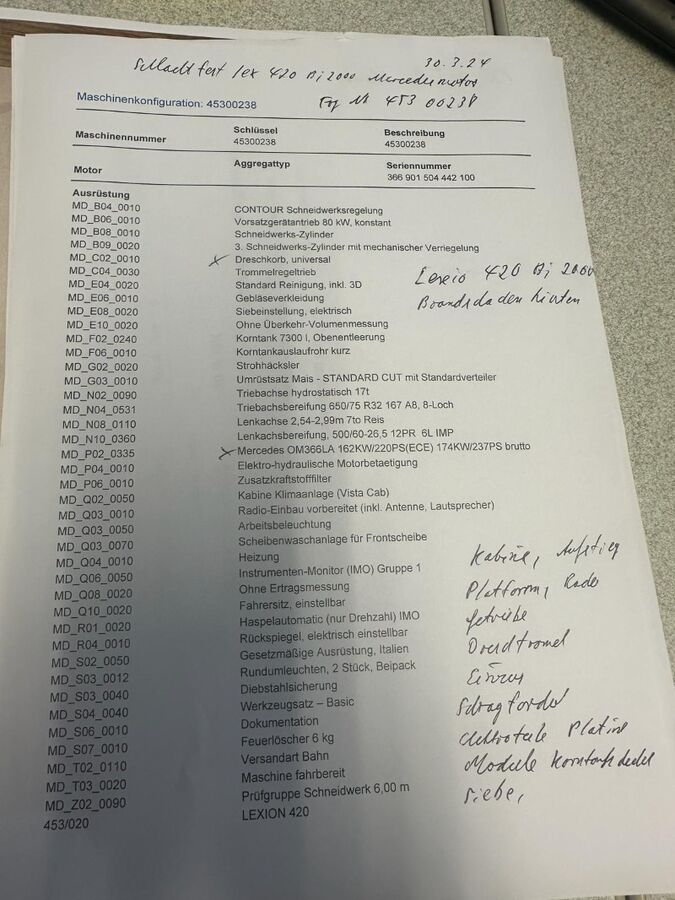 Schlachtfest lex 420 Bj 2000 Mercedesmotor 30.3.24
Maschinenkonfiguration: 45300238 Fg Nr 453 00238
Maschinennummer Schlüssel Beschreibung
45300238 45300238
Motor Aggregattyp Seriennummer
366 901 504 442 100
Ausrüstung
MD_B04_0010 CONTOUR Schneidwerksregelung
MD_B06_0010 Vorsatzgerätantrieb 80 kW, konstant
MD_B08_0010 Schneidwerks-Zylinder
MD_B09_0020 3. Schneidwerks-Zylinder mit mechanischer Verriegelung
MD_C02_0010 Dreschkorb, universal
MD_C04_0030 Trommelregeltrieb
MD_E04_0020 Standard Reinigung, inkl. 3D
MD_E06_0010 Gebläseverkleidung
MD_E08_0020 Siebeinstellung, elektrisch
MD_E10_0020 Ohne Überkehr-Volumenmessung
MD_F02_0240 Korntank 7300 l, Obenentleerung
MD_F06_0010 Korntankauslaufrohr kurz
MD_G02_0020 Strohhäcksler
MD_G03_0010 Umrüstsatz Mais - STANDARD CUT mit Standardverteiler
MD_N02_0090 Triebachse hydrostatisch 17t
MD_N04_0531 Triebachsbereifung 650/75 R32 167 A8, 8-Loch
MD_N08_0110 Lenkachse 2,54-2,99m 7to Reis
MD_N10_0360 Lenkachsbereifung, 500/60-26,5 12PR 6L IMP
MD_P02_0335 Mercedes OM366LA 162KW/220PS(ECE) 174KW/237PS brutto
MD_P04_0010 Elektro-hydraulische Motorbetaetigung
MD_P06_0010 Zusatzkraftstofffilter
MD_Q02_0050 Kabine Klimaanlage (Vista Cab)
MD_Q03_0010 Radio-Einbau vorbereitet (inkl. Antenne, Lautsprecher)
MD_Q03_0050 Arbeitsbeleuchtung
MD_Q03_0070 Scheibenwaschanlage für Frontscheibe
MD_Q04_0010 Heizung
MD_Q06_0050 Instrumenten-Monitor (IMO) Gruppe 1
MD_Q08_0020 Ohne Ertragsmessung
MD_Q10_0020 Fahrersitz, einstellbar
MD_R01_0020 Haspelautomatic (nur Drehzahl) IMO
MD_R04_0010 Rückspiegel, elektrisch einstellbar
MD_S02_0050 Gesetzmäßige Ausrüstung, Italien
MD_S03_0012 Rundumleuchten, 2 Stück, Beipack
MD_S03_0040 Diebstahlsicherung
MD_S04_0040 Werkzeugsatz – Basic
MD_S06_0010 Dokumentation
MD_S07_0010 Feuerlöscher 6 kg
MD_T02_0110 Versandart Bahn
MD_T03_0020 Maschine fahrbereit
MD_Z02_0090 Prüfgruppe Schneidwerk 6,00 m
453/020 LEXION 420
Lexio 420 Bj 2000
Brandschaden hinten
Kabine, Aufstieg
Platform, Räder
getriebe
Einzug
Schragforder
Elektroteile Platine
Module Korntank deckel
Siebe,